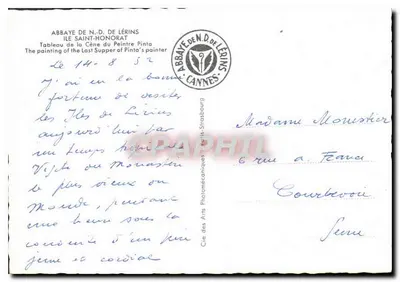 ABBAYE DE N.-D. DE LÉRINS
ILE SAINT-HONORAT
Tableau de la Cène du Peintre Pinta
The painting of the Last Supper of Pinta's painter
Le 14 - 8 52
J'ai eu la bonne
fortune de visiter
les Iles de Lérins
aujourd'hui par
un temps
le plus vieux du
Monde, pendant
une heure sous la
conduite d'un père
jeune et cordial
ABBAYE DE N.D. DE LÉRINS
CANNES
Cie des Arts Photomécaniques Paris-Strasbourg
CPARAMA.COM
Madame Monestier
6 rue A. France
Courbevoie
Seine